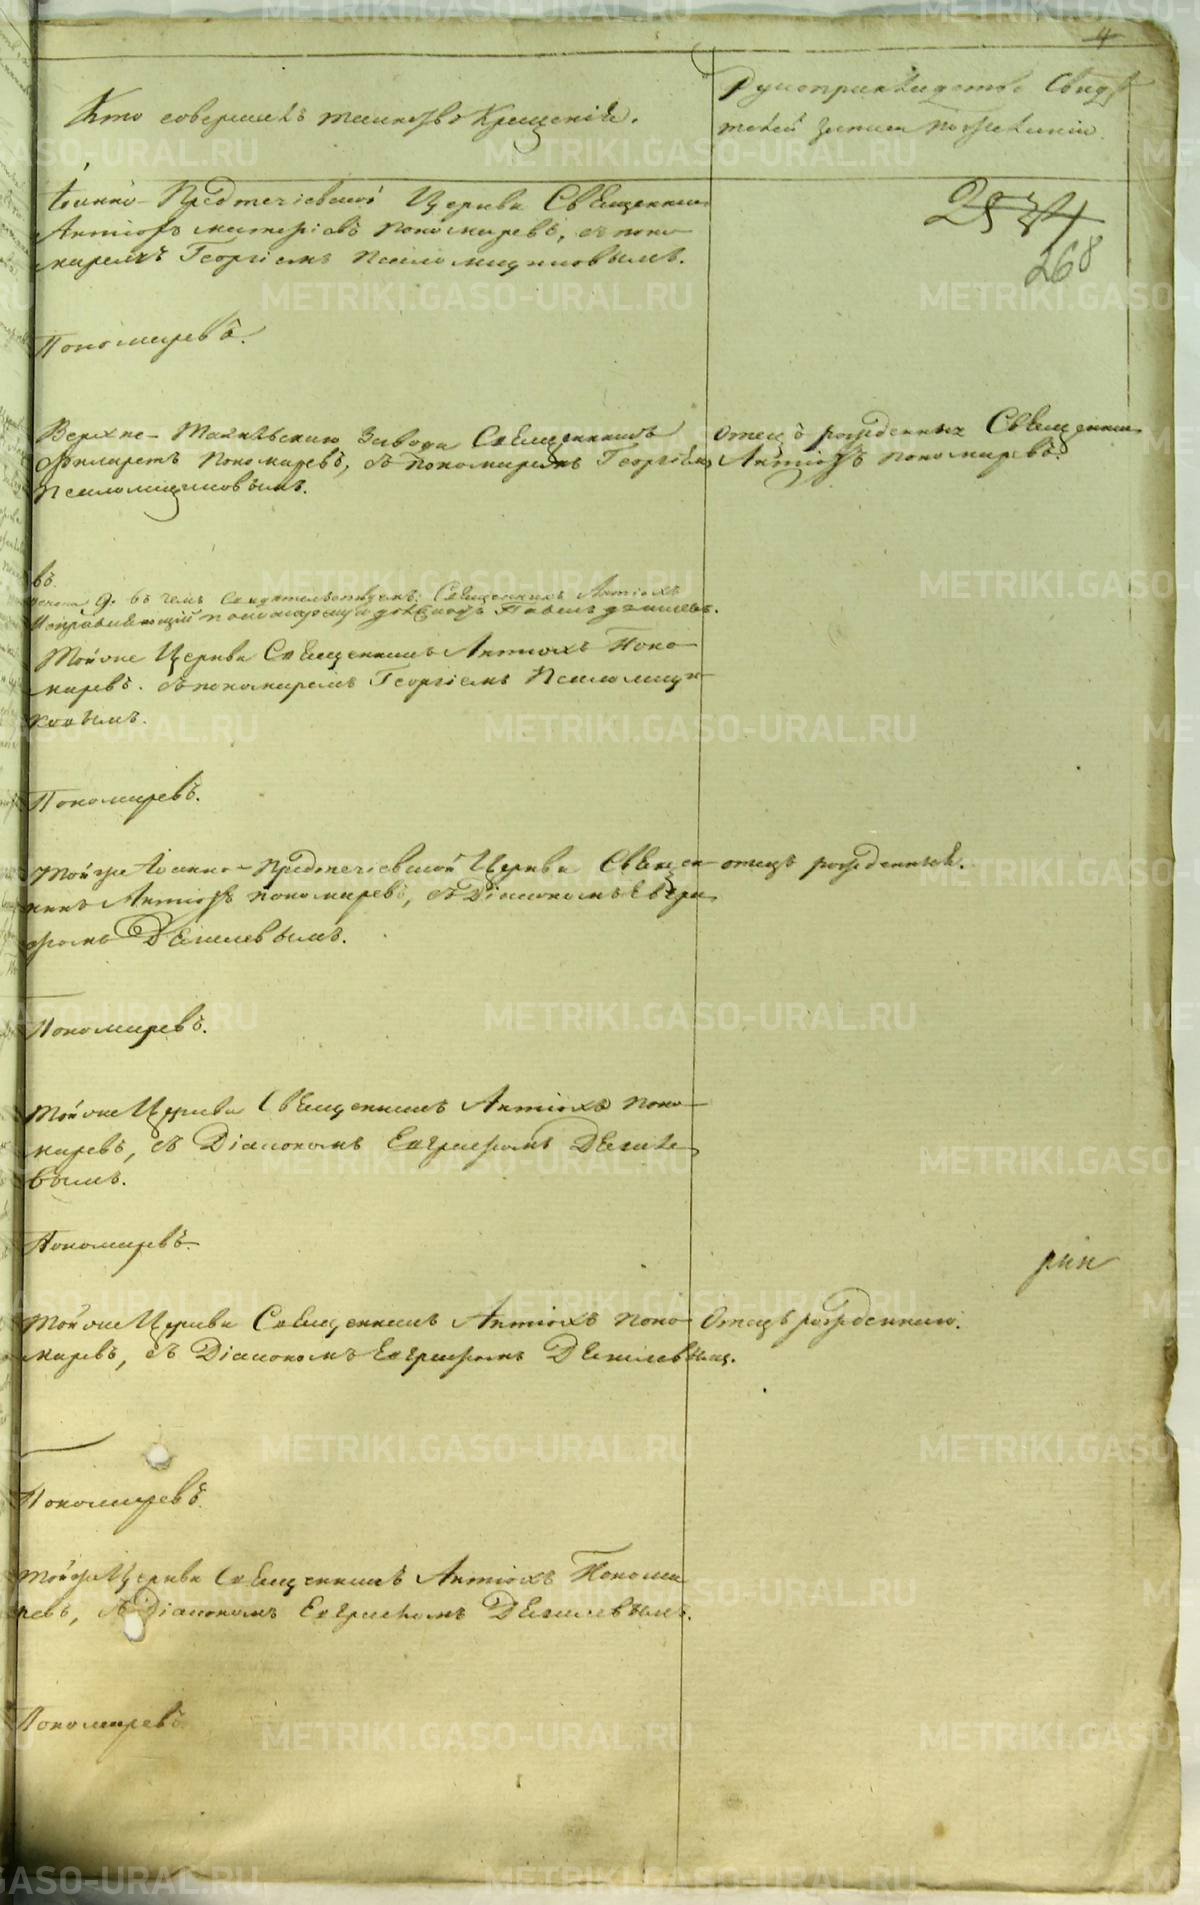 4
Кто совершалъ таинство Крещенія.
Рукоприкладство Свидѣ
телей записи по желанію.
Іоанно-Предтечіевской Церкви Священникъ
Антіохъ Пономаревъ, съ поно
маремъ Георгіемъ Псаломщиковымъ.
268
Пономаревъ.
Верхне-Тагильскаго Завода Священникъ
Филаретъ Пономаревъ, съ пономаремъ Георгіемъ
Псаломщиковымъ.
Отецъ рожденныхъ Священникъ
Антіохъ Пономаревъ.
въ
9. въ чемъ свидѣтельствуемъ: Священникъ Антіохъ
Исправляющій должность Павелъ
Тойже Церкви Священникъ Антіохъ Поно
маревъ. съ пономаремъ Георгіемъ Псаломщи
ковымъ.
Пономаревъ.
Тойже Іоанно-Предтечіевской Церкви Священ
никъ Антіохъ Пономаревъ, съ Діакономъ Евгра
фомъ Дѣгилевымъ.
отецъ рожденный.
Пономаревъ.
Тойже Церкви Священникъ Антіохъ Поно
маревъ, съ Діакономъ Евграфомъ Дѣгиле
вымъ.
Пономаревъ.
Тойже Церкви Священникъ Антіохъ Поно
маревъ, съ Діакономъ Евграфомъ Дѣгилевымъ.
Отецъ рожденнаго.
Пономаревъ.
Тойже Церкви Священникъ Антіохъ Понома
ревъ, съ Діакономъ Евграфомъ Дѣгилевымъ.
Пономаревъ
METRIKI.GASO-URAL.RU